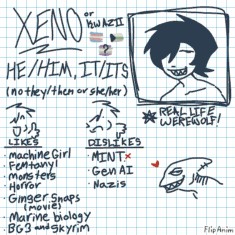 XENO
or KWAZII
?
HE/HIM, IT/ITS
(no they/them or she/her)
REAL LIFE
WEREWOLF!
LIKES
• Machine Girl
• Fentanyl
• Monsters
• Horror
• Ginger Snaps
(movie)
• Marine biology
• BG3 and skyrim
DISLIKES
• MINT
• Gen AI
• Nazis
FlipAnim